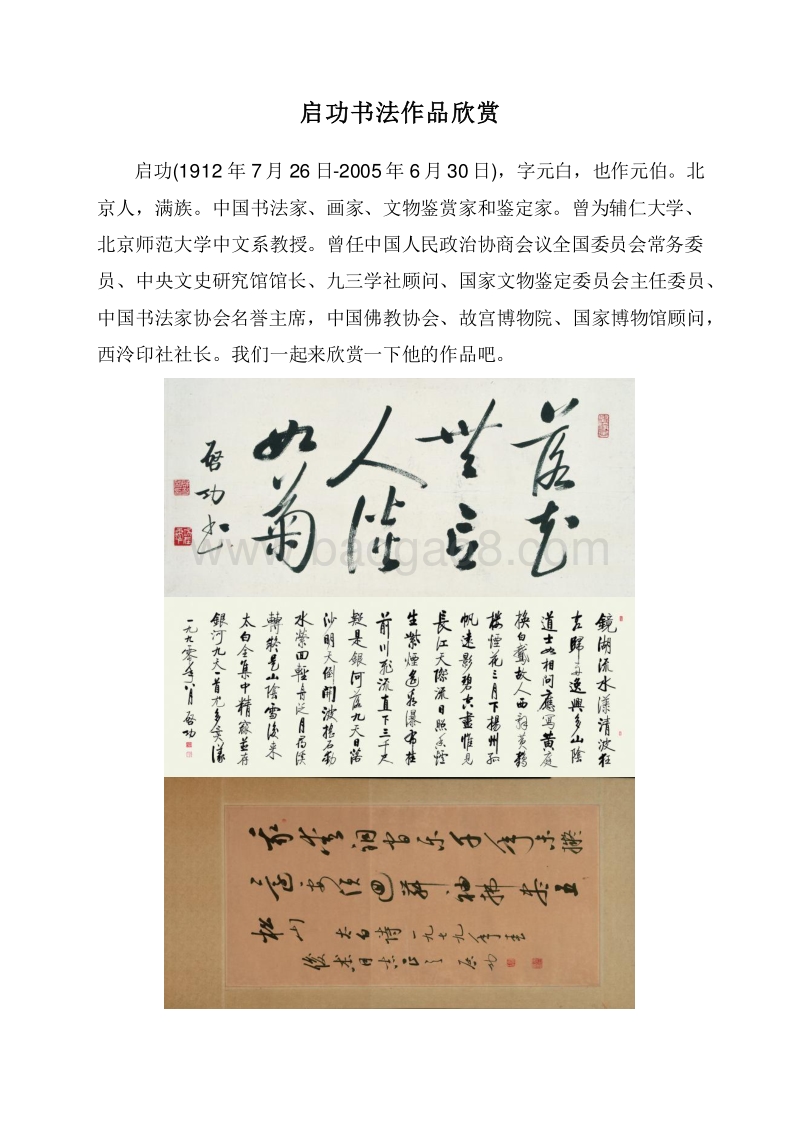 启功书法作品欣赏
启功(1912 年 7 月 26 日-2005 年 6 月 30 日)，字元白，也作元伯。北
京人，满族。中国书法家、画家、文物鉴赏家和鉴定家。曾为辅仁大学、
北京师范大学中文系教授。曾任中国人民政治协商会议全国委员会常务委
员、中央文史研究馆馆长、九三学社顾问、国家文物鉴定委员会主任委员、
中国书法家协会名誉主席，中国佛教协会、故宫博物院、国家博物馆顾问，
西泠印社社长。我们一起来欣赏一下他的作品吧。
落花
無言
人淡
如菊
启功书
www.baogao8.com
鏡湖流水漾清波狂
客歸舟逸興多山陰
道士如相問應寫黄庭
換白鵞故人西辭黄鶴
樓煙花三月下揚州孤
帆遠影碧空盡惟見
長江天際流日照香爐
生紫煙遥看瀑布挂
前川飛流直下三千尺
疑是銀河落九天日落
沙明天倒開波摇石動
水縈回輕舟泛月尋溪
轉疑是山陰雪後來
太白全集中精寂並存
銀河九天一首尤多
一九九零年八月 启功
我
松山
太白詩一九七九年
启功